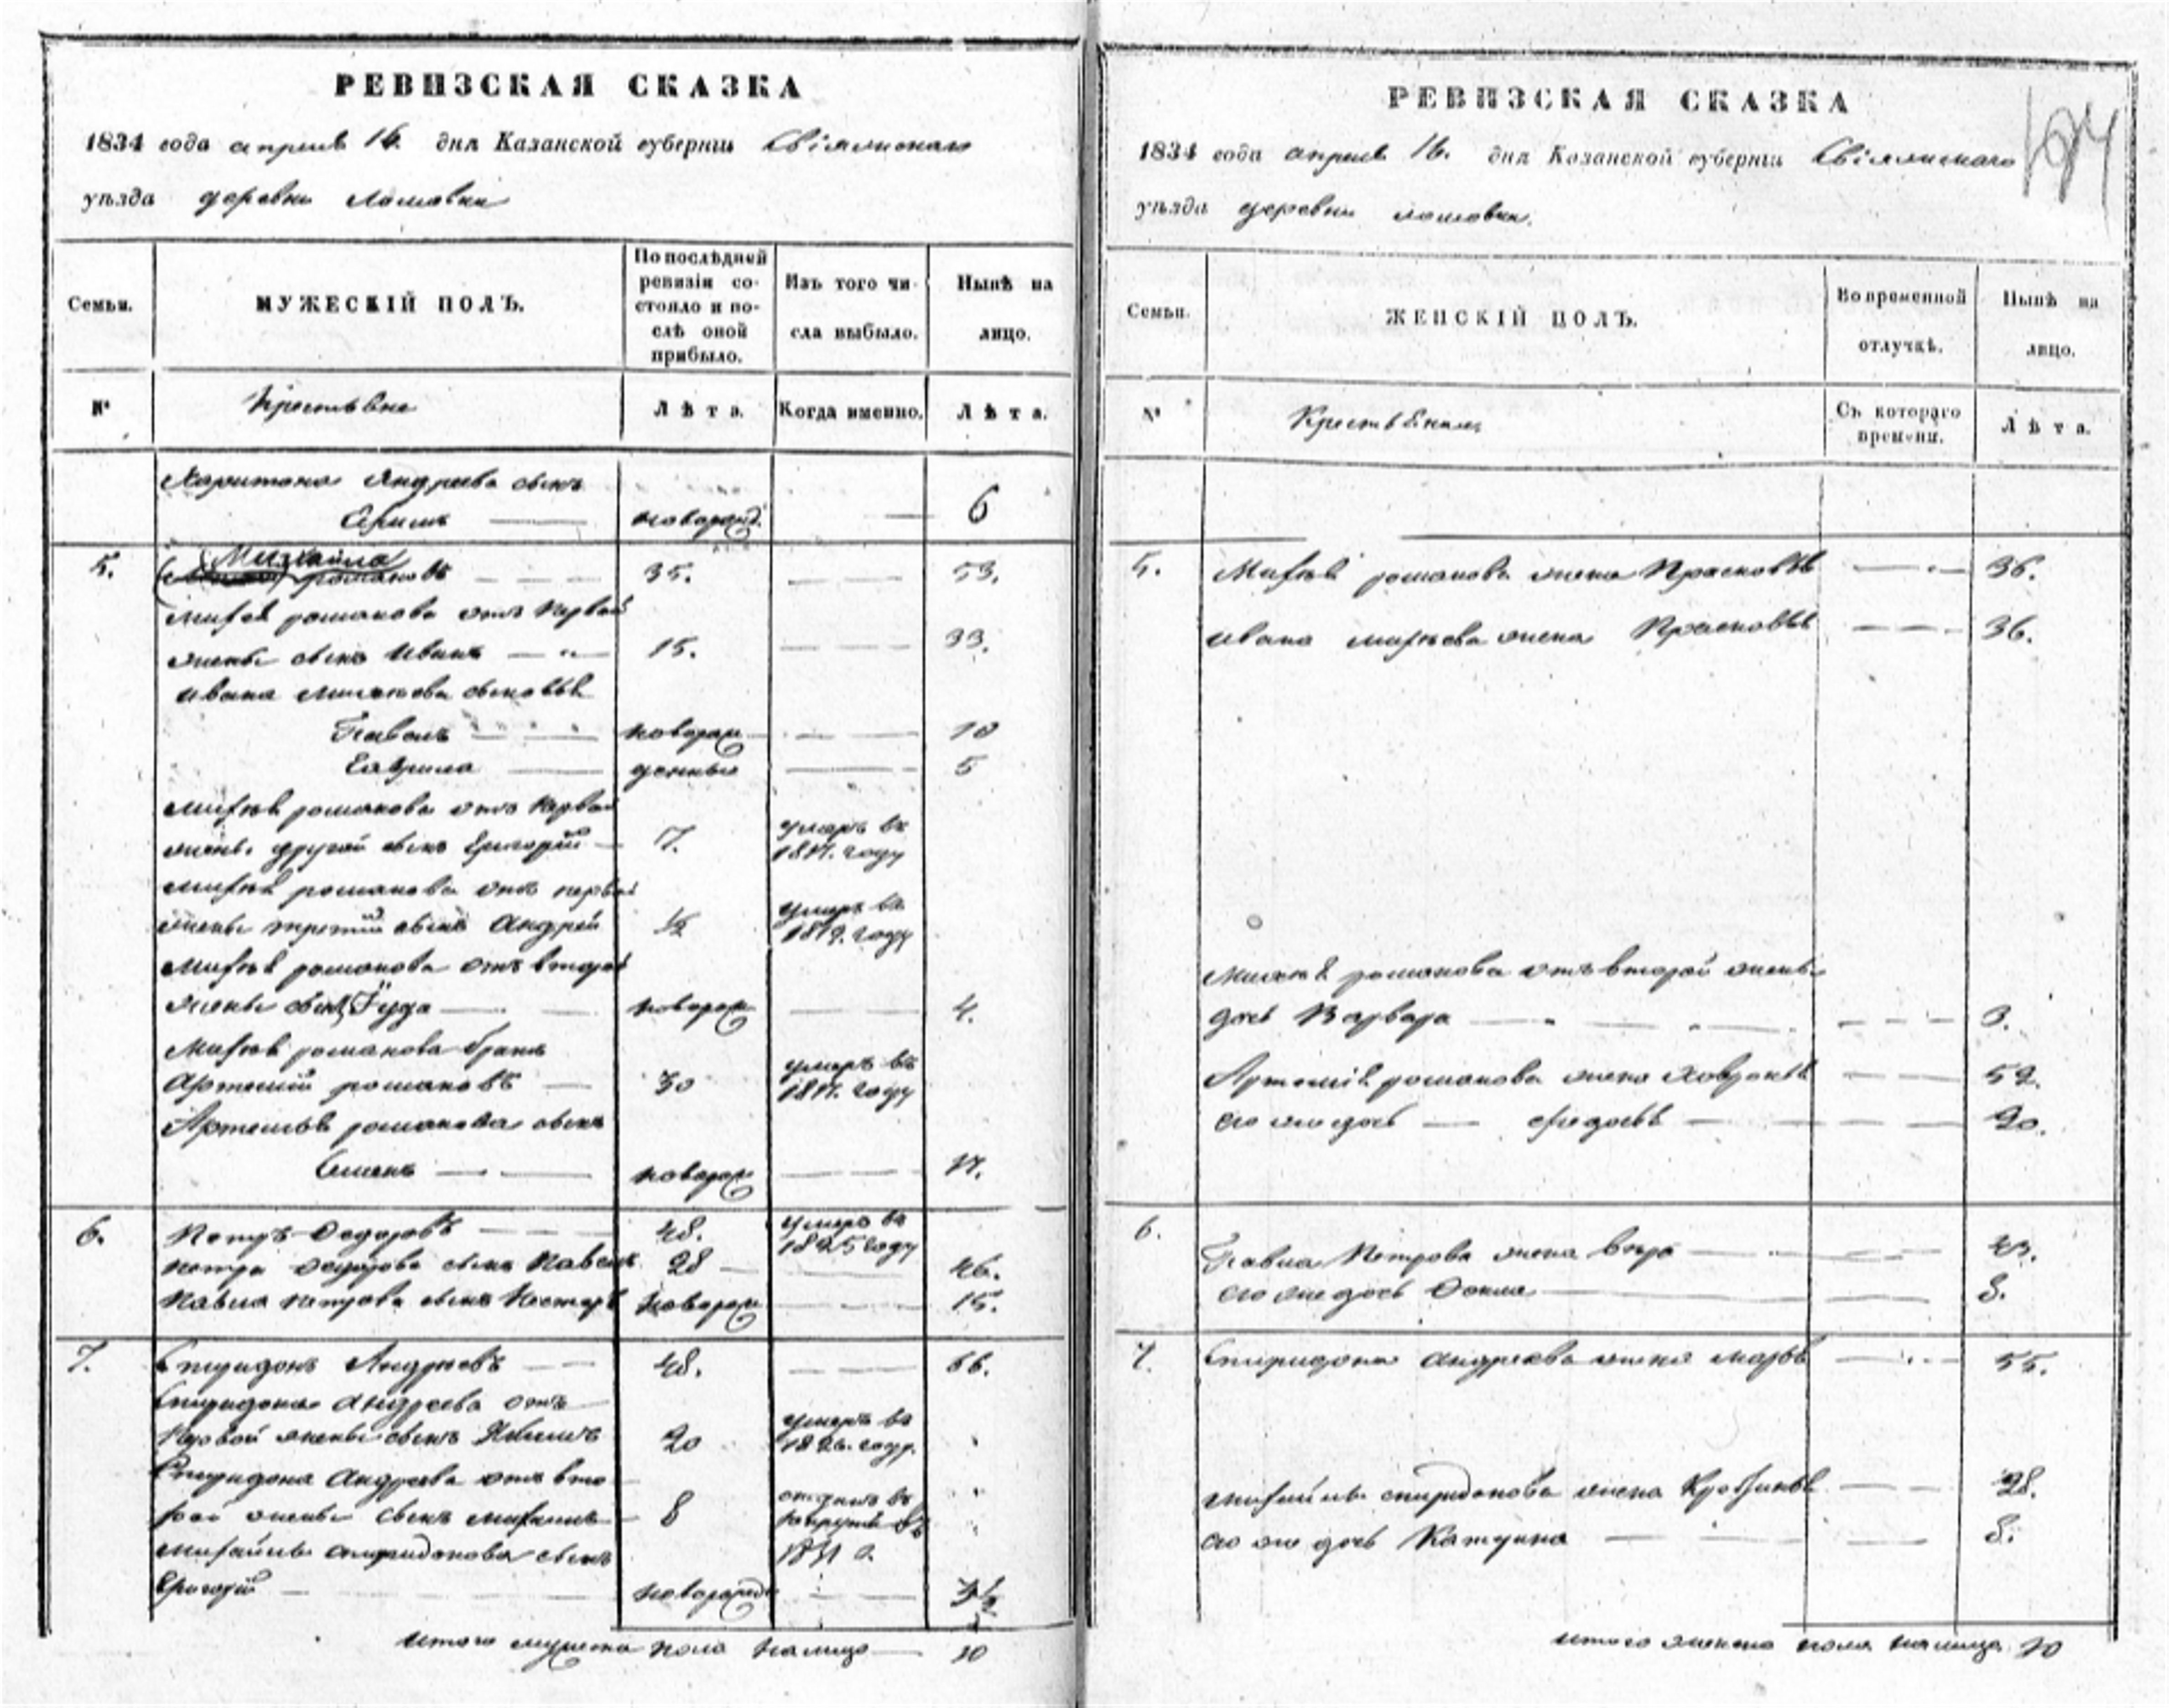 РЕВИЗСКАЯ СКАЗКА
1834 года апреля 16. дня Казанской губерніи Свіяжскаго
уѣзда деревни Ломовки
Семьи.
МУЖЕСКІЙ ПОЛЪ.
По послѣдней
ревизіи со-
стояло и по-
слѣ оной
прибыло.
Изъ того чи-
сла выбыло.
Нынѣ на
лицо.
№
Крестьяне
Лѣта.
Когда именно.
Лѣта.
Харитона Андреева сынъ
Ефимъ новорожд. 6
5. Михайла романовъ 35. 53.
Михея романова отъ первой
жены сынъ Иванъ 15. 33.
Ивана Михеева сыновья
Павелъ новорож 10
Гаврила денные 5
Михея романова отъ первой
жены другой сынъ Григорій 7. умеръ въ
1817. году
Михея романова отъ первой
жены третій сынъ Андрей ½ умеръ въ
1819. году
Михея романова отъ второй
жены сынъ Іуда новорож 4.
Михея романова братъ
Артемій романовъ 30 умеръ въ
1817. году
Артемья романова сынъ
Семенъ новорож 17.
6. Петръ Федоровъ 48. умеръ въ
1825 году
Петра Федорова сынъ Павелъ 28 46.
Павла Петрова сынъ Нестеръ новорож 15.
7. Спиридонъ Андреевъ 48. 66.
Спиридона Андреева отъ
первой жены сынъ 20 умеръ въ
1826. году.
Спиридона Андреева отъ вто
рой жены сынъ Михайла 8 отданъ въ
рекруты въ
1831 г.
Михайлы Спиридонова сынъ
Григорій новорожд
Итого мужеска пола налицо 10
РЕВИЗСКАЯ СКАЗКА
1834 года апреля 16. дня Казанской губерніи Свіяжскаго
уѣзда деревни Ломовки.
Семьи.
ЖЕНСКІЙ ПОЛЪ.
Во временной
отлучкѣ.
Нынѣ на
лицо.
№
Съ котораго
времени.
Лѣта.
5. Михея романова жена Прасковья 36.
Ивана Михеева жена Прасковья 36.
Михея романова отъ второй жены
дочь Варвара 3.
Артемія романова жена Ховронья 52.
его же дочь Федосья 20.
6. Павла Петрова жена Вера 43.
его же дочь Фокла 8.
7. Спиридона Андреева жена Марья 55.
Михайлы Спиридонова жена 28.
его же дочь Катерина 8.
итого женска пола налицо 10